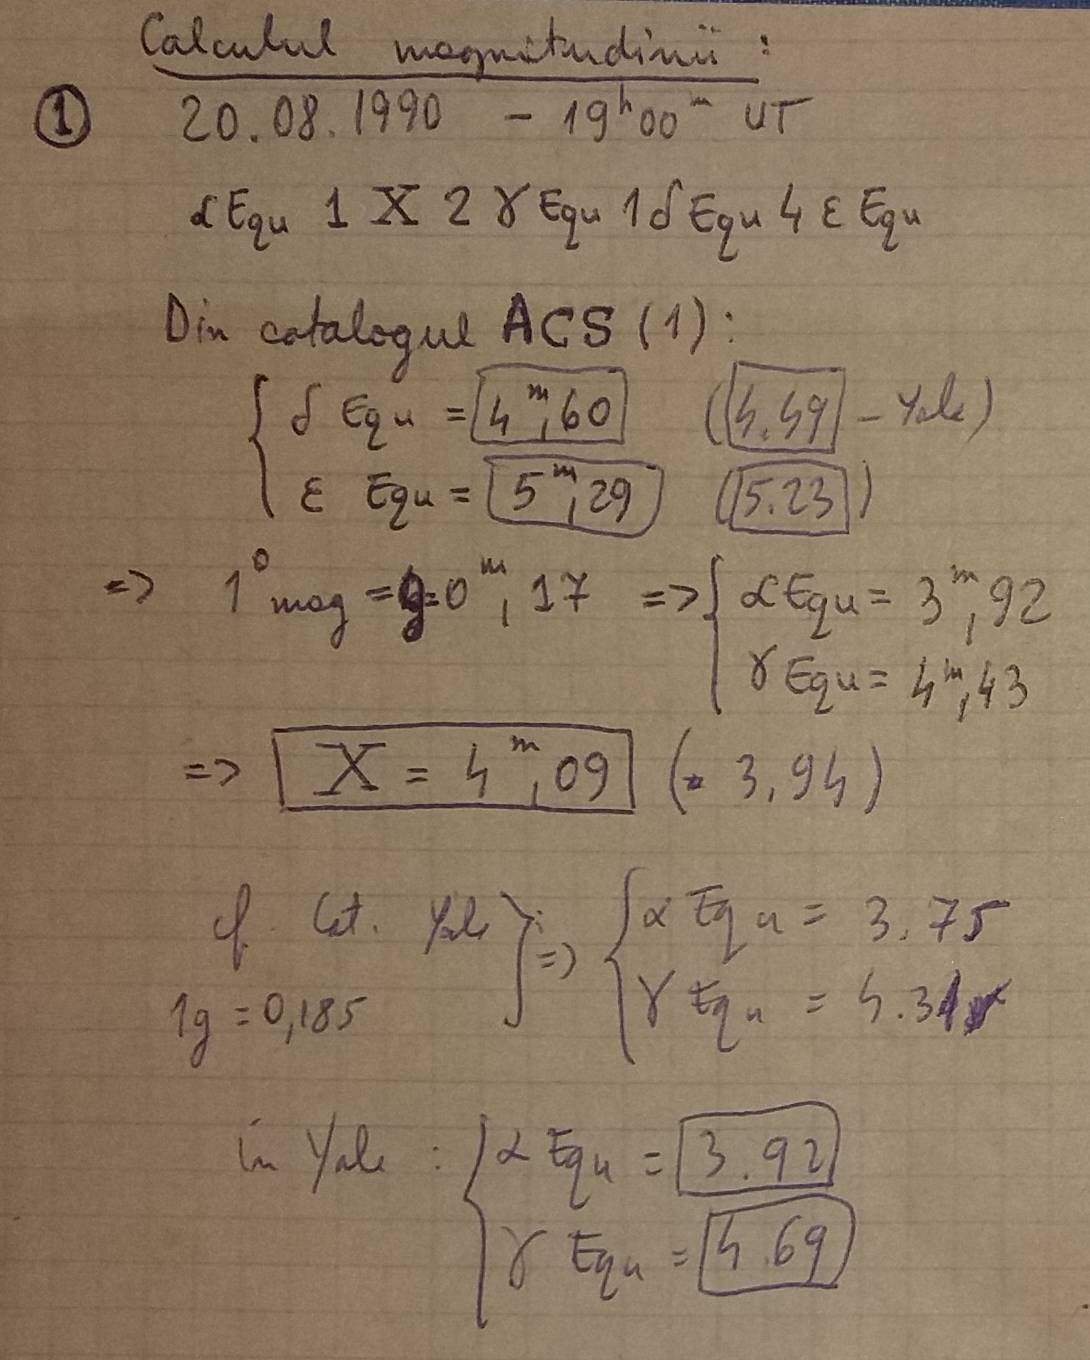 Calculul magnitudinii:
① 20.08.1990 - 19ʰ00ᵐ UT
αEqu 1 X 2 γ Equ 1 δ Equ 4 ε Equ
Din catalogul ACS (1):
δ Equ = 4ᵐ,60 (4.49 - Yale)
ε Equ = 5ᵐ,29 (5.23)
=> 1° mag = 0ᵐ,17 => αEqu = 3ᵐ,92
γ Equ = 4ᵐ,43
=> X = 4ᵐ,09 (3,94)
cf. Cat. Yale => α Equ = 3.75
1g = 0,185 γ Equ = 4.31
in Yale: α Equ = 3.92
γ Equ = 4.69